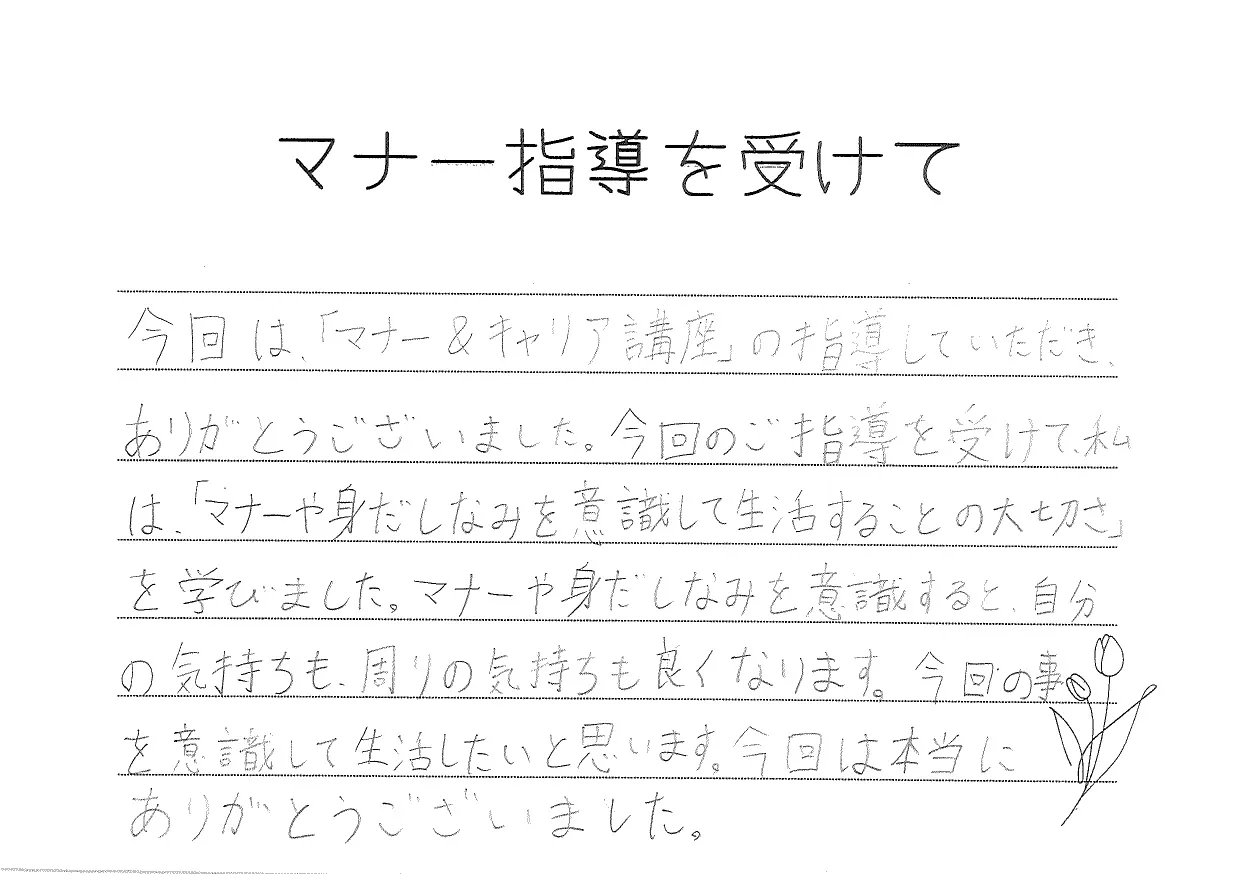 マナー指導を受けて
今回は、「マナー＆キャリア講座」の指導していただき、
ありがとうございました。今回のご指導を受けて、私
は、「マナーや身だしなみを意識して生活することの大切さ」
を学びました。マナーや身だしなみを意識すると、自分
の気持ちも、周りの気持ちも良くなります。今回の事
を意識して生活したいと思います。今回は本当に
ありがとうございました。